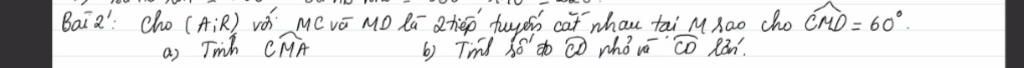 Bài 2: Cho (A;R) với MC và MD là 2 tiếp tuyến cắt nhau tại M sao cho CMD = 60°.
a) Tính CMA b) Tính số đo CD nhỏ và CD lớn.